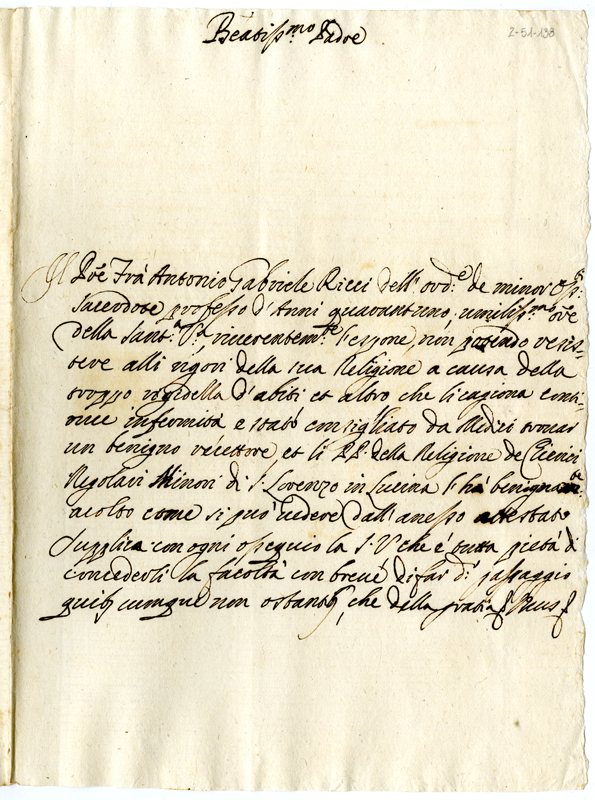 Beatiss.mo Padre
2-51-138
Il Prē Frà Antonio Gabriele Ricci dell' ord.e de minor Oss.
Sacerdote professo d'Anni quarantuno, umiliss.mo ōre
della Sant.a V.a riverentem.te l'espone, non potendo resis-
tere alli rigori della sua Religione a causa della
troppo rigidella d'abiti et altro che li cagiona conti-
nue infermità e stato consigliato da Medici trovar
un benigno ricettore et li PP. della Religione de Clerici
Regolari Minori di S. Lorenzo in Lucina l'ha benignam.te
acolto come si può vedere dall' anesso attestato
Supplica con ogni ossequio la S. V. che é tutta pietà di
concederli la facoltà con breve di far di passaggio
quibuscumque non ostantib, che della gratia